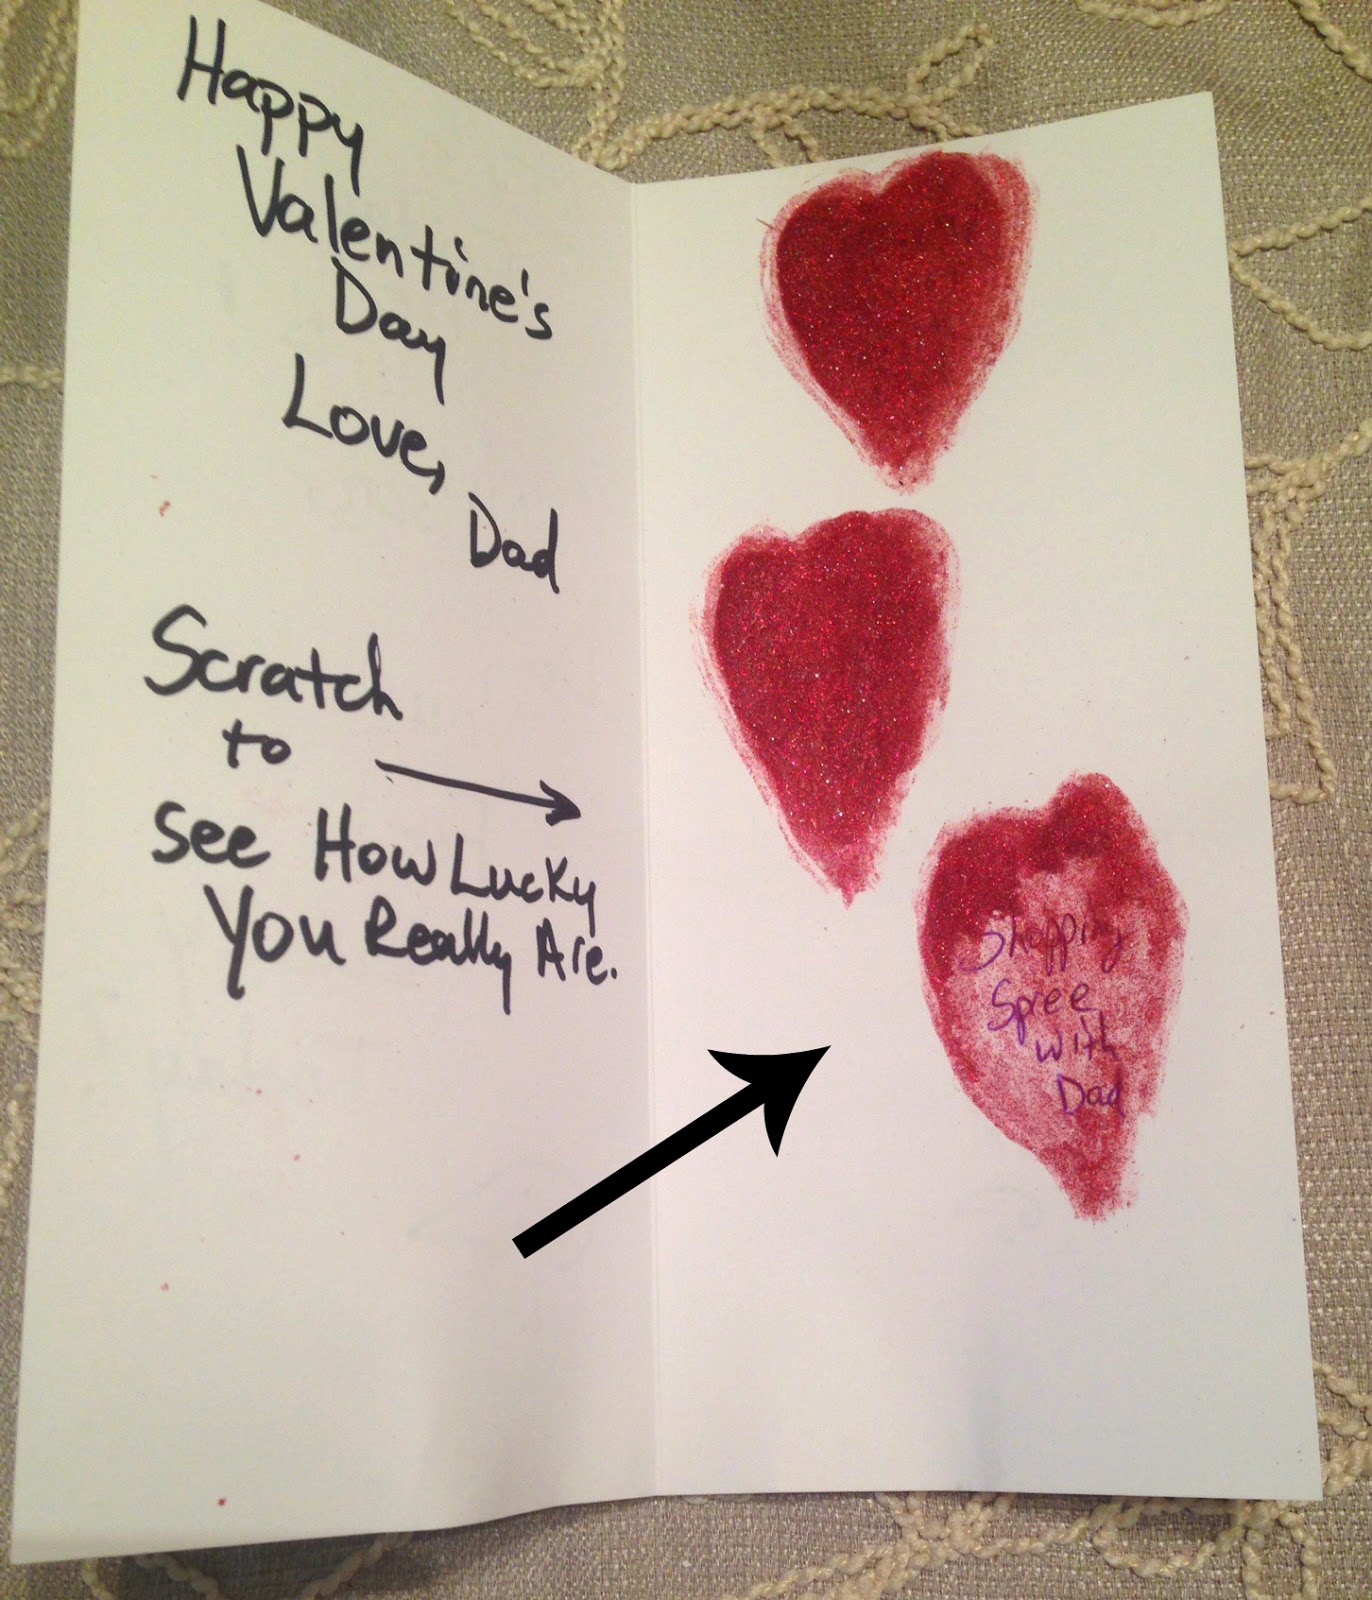 Happy
Valentine's
Day
Love,
Dad
Scratch
to
see How Lucky
You Really Are.
Shopping
Spree
with
Dad